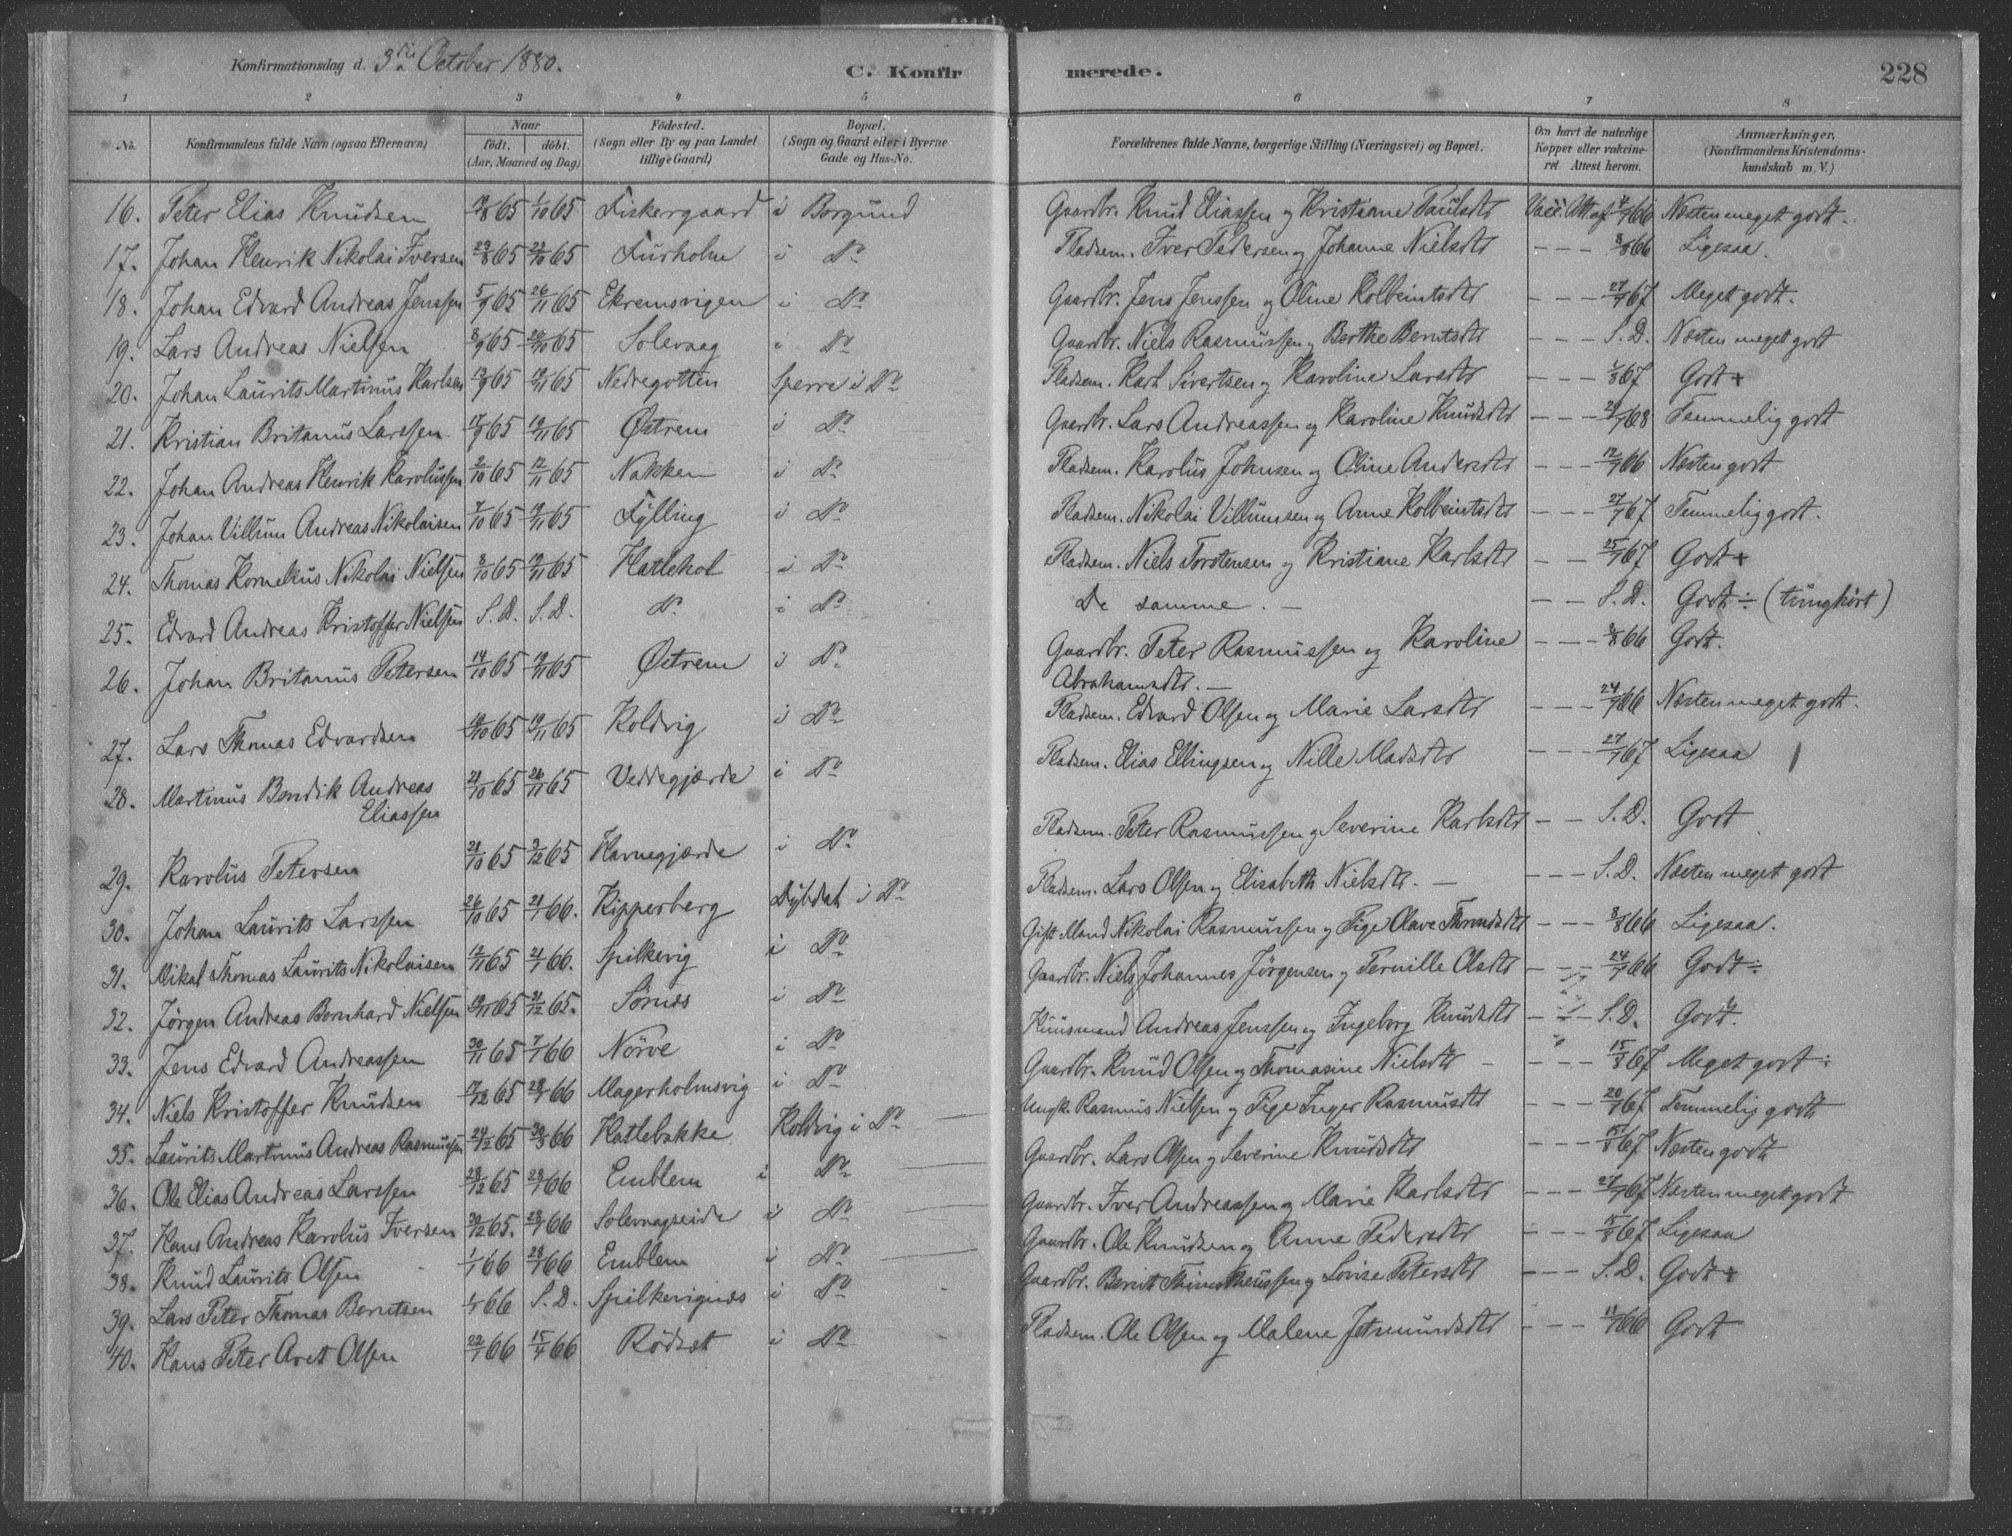 Konfirmationsdag d. 3die October 1880.
C. Konfirmerede.
228
1 2 3 4 5 6 7 8
No. Konfirmandens fulde Navn (ogsaa Efternavn) Naar födt. döbt. (Aar, Maaned og Dag) Födested. (Sogn eller By og paa Landet tillige Gaard) Bopæl. (Sogn og Gaard eller i Byerne Gade og Hus-No. Forældrenes fulde Navne, borgerlige Stilling (Næringsvei) og Bopæl. Om havt de naturlige Kopper eller vakcineret Attest herom. Anmærkninger. (Konfirmandens Kristendomskundskab m. V.)
16. Peter Elias Knudsen 65 1/10 65 Fiskergaard i Borgund Gaardbr. Knud Eliassen og Kristiane Paulsdtr Vacc. Att. af 66 Næsten meget godt.
17. Johan Henrik Nikolai Iversen 23/8 65 65 Furholm i Do Pladsem. Iver Pedersen og Johanne Nielsdtr - - - 8/8 66 Ligesaa.
18. Johan Edvard Andreas Jenssen 5/9 65 26/11 65 Ekremsvigen i Do Gaardbr. Jens Jenssen og Oline Kolbeintsdtr - - - 27/7 67 Meget godt.
19. Lars Andreas Nielsen 8/9 65 65 Solevaag i Do Gaardbr. Niels Rasmussen og Berthe Berntsdtr - - - S. D. Næsten meget godt
20. Johan Laurits Martinus Karlsen 65 19/11 65 Nedregotten Sperre i Do Pladsem. Karl Sivertsen og Karoline Larsdtr - - - 67 Godt +
21. Kristian Britanus Larssen 17/9 65 19/11 65 Østrem i Do Gaardbr. Lars Andreassen og Karoline Knudsdtr - - - 68 Temmelig godt
22. Johan Andreas Henrik Karolussen 2/10 65 12/11 65 Nakken i Do Pladsem. Karolus Johnsen og Oline Andersdtr - - - 12/7 66 Næsten godt
23. Johan Villum Andreas Nikolaisen 7/10 65 19/11 65 Fylling i Do Pladsem. Nikolai Villumsen og Anne Kolbeintsdtr - - - 27/7 67 Temmelig godt.
24. Thomas Kornelius Nikolai Nielsen 8/10 65 19/11 65 Hatlehol i Do Pladsem. Niels Torstensen og Kristiane Karlsdtr - - - 25/7 67 Godt +
25. Edvard Andreas Kristoffer Nielsen S. D. S. D. Do i Do De samme. - - - S. D. Godt ÷ (tunghört)
26. Johan Britanus Petersen 14/10 65 19/11 65 Østrem i Do Gaardbr. Peter Rasmussen og Karoline - - - 66 Godt.
Abrahamsdtr.
27. Lars Thomas Edvardsen 65 19/11 65 Koldvig i Do Pladsem. Edvard Olsen og Marie Larsdtr - - - 24/7 66 Næsten meget godt.
28. Martinus Bendik Andreas 21/10 65 26/11 65 Veddegjærde i Do Pladsem. Elias Ellingsen og Nille Madsdtr - - - 27/7 67 Ligesaa
Eliassen
29. Karolus Petersen 21/10 65 3/12 65 Havnegjærde i Do Pladsem. Peter Rasmussen og Severine Karlsdtr - - S. D. Godt
30. Johan Laurits Larssen 26/10 65 21/1 66. Kipperberg Dybdal i Do Pladsem. Lars Olsen og Elisabeth Nielsdtr. - - - S. D. Næsten meget godt
31. Mikal Thomas Laurits Nikolaisen 12/11 65 21/1 66. Spilkevig i Do Gift Mand Nikolai Rasmussen og Pige Olave Thronsdtr - - - 8/8 66 Ligesaa.
32. Jörgen Andreas Bernhard Nielsen 65 31/12 65. Sörnes i Do Gaardbr. Niels Johannes Jörgensen og Pernille Olsdtr - - - 24/7 66 Godt ÷
33. Jens Edvard Andreassen 30/11 65 7/1 66 Nörve i Do Huusmand Andreas Jenssen og Ingeborg Knudsdtr - - - S. D. Godt.
34. Niels Kristoffer Knudsen 17/12 65 28/1 66 Magerholmsvig i Do Gaardbr. Knud Olsen og Thomasine Nielsdtr - 15/8 67 Meget godt ÷
35. Laurits Martinus Andreas Rasmussen 24/12 65 30/3 66 Hatlebakke Koldvig i Do Ungk. Rasmus Nielsen og Pige Inger Rasmusdtr - - - 20/7 67 Temmelig godt
36. Ole Elias Andreas Larssen 28/12 65 28/1 66 Emblem i Do Gaardbr. Lars Olsen og Severine Knudsdtr - - - 15/8 67 Næsten godt
37. Hans Andreas Karolus Iversen 30/12 65. 28/1 66 Solevagseide i Do Gaardbr. Iver Andreassen og Marie Karlsdtr - - - 27/7 67 Næsten meget godt
38. Knud Laurits Olsen 1/1 66 28/1 66 Emblem i Do Gaardbr. Ole Knudsen og Anne Pedersdtr - - - 15/8 67 Ligesaa
39. Lars Peter Thomas Berntsen 66 S. D. Spilkevignes i Do Gaardbr. Bernt Thimotheussen og Lovise Petersdtr - - - S. D. Godt +
40. Hans Peter Aret Olsen 22/1 66 15/4 66 Rödset i Do Pladsem. Ole Olsen og Malene Jetmundsdtr - - - 11/7 66 Godt